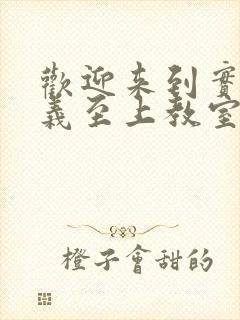 歡迎來到實
義至上教室
橙子會甜的